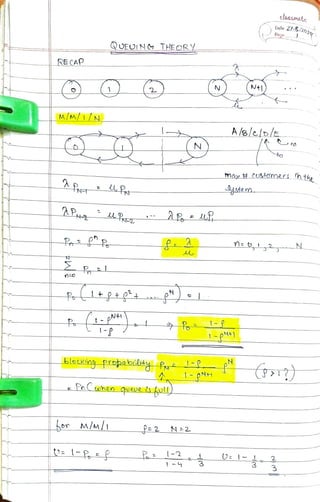 classmate
Date
Page 1
QUEUING THEORY
RECAP
0 1 2 N N+1 ...
λ
μ
M/M/1/N
A/B/C/D/E
∞
0 1 N
max # customers in the system.
λ P_{N-1} = μ P_N
λ P_{N-2} = μ P_{N-2} ... λ P₀ = μ P₁
Pₙ = ρⁿ P₀ ρ = λ/μ n = 0, 1, 2, ... N
Σ_{n=0}^{N} Pₙ = 1
P₀ (1 + ρ + ρ² + ... ρᴺ) = 1
P₀ ((1 - ρ^{N+1})/(1 - ρ)) = 1 ⇒ P₀ = (1 - ρ)/(1 - ρ^{N+1})
blocking probability P_N = (1 - ρ)/(1 - ρ^{N+1}) ρᴺ (ρ > 1?)
= Pr (when queue is full)
for M/M/1 ρ = 2 N = 2
U = 1 - P₀ = ρ P₀ = (1 - 2)/(1 - 4) = 1/3 U = 1 - 1/3 = 2/3